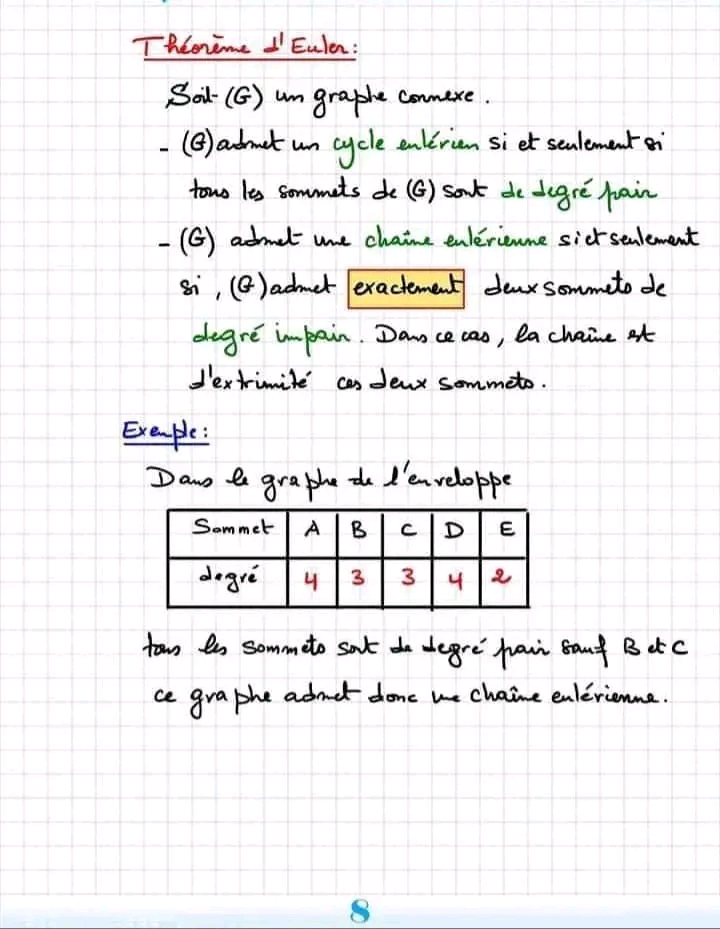 Théorème d'Euler :
Soit (G) un graphe connexe.
- (G) admet un cycle eulérien si et seulement si
tous les sommets de (G) sont de degré pair
- (G) admet une chaîne eulérienne si et seulement
si, (G) admet exactement deux sommets de
degré impair. Dans ce cas, la chaîne est
d'extrimité ces deux sommets.
Exemple :
Dans le graphe de l'enveloppe
Sommet A B C D E
degré 4 3 3 4 2
tous les sommets sont de degré pair sauf B et C
ce graphe admet donc une chaîne eulérienne.
8